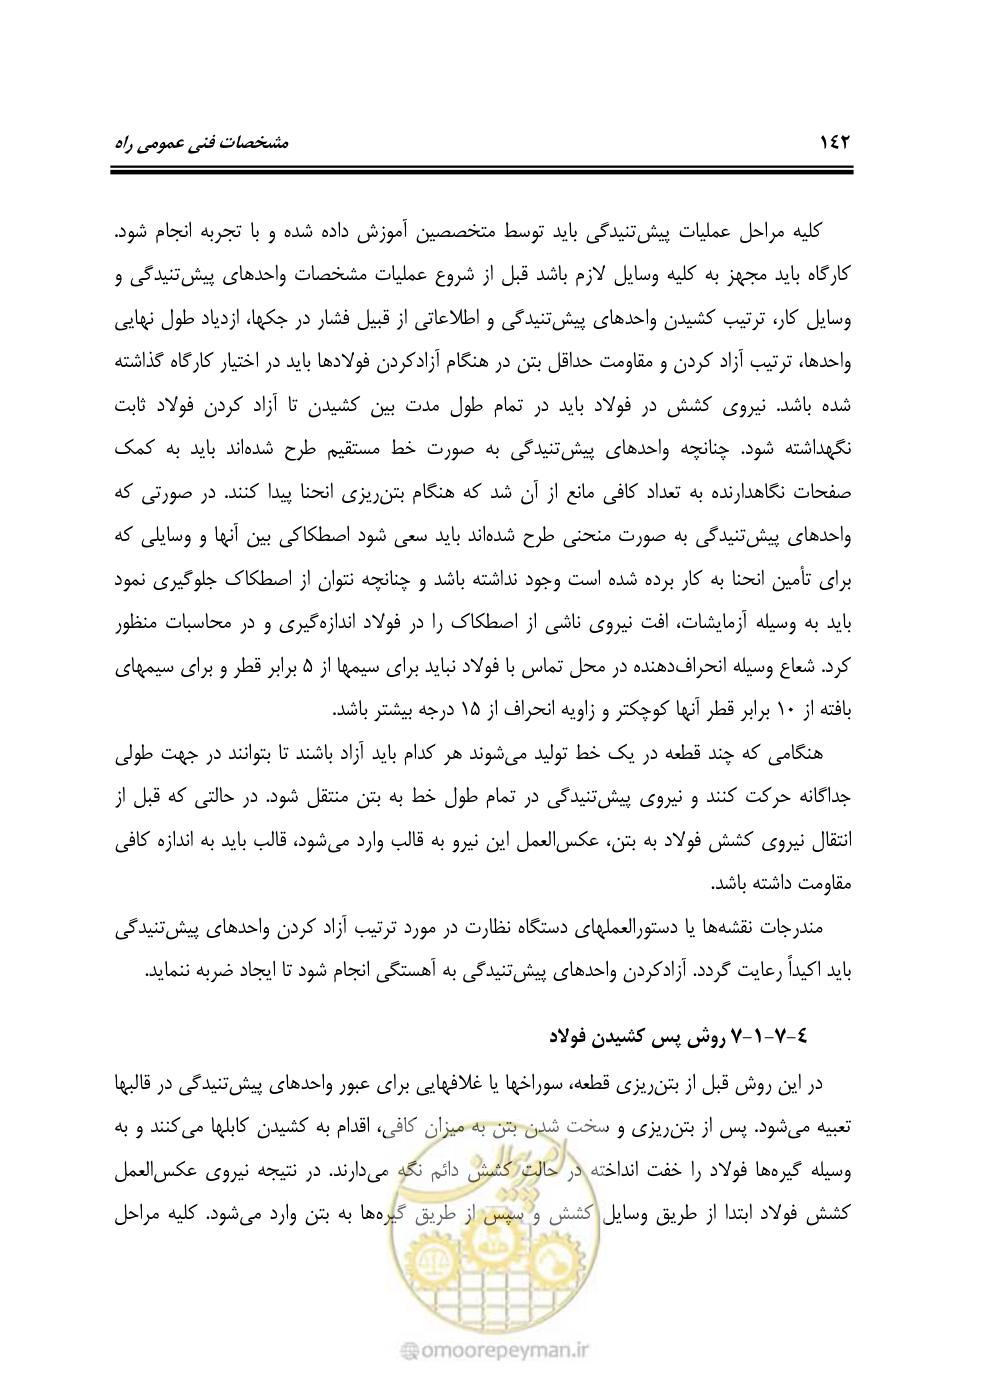 ۱۴۲ مشخصات فنی عمومی راه
کلیه مراحل عملیات پیش‌تنیدگی باید توسط متخصصین آموزش داده شده و با تجربه انجام شود.
کارگاه باید مجهز به کلیه وسایل لازم باشد قبل از شروع عملیات مشخصات واحدهای پیش‌تنیدگی و
وسایل کار، ترتیب کشیدن واحدهای پیش‌تنیدگی و اطلاعاتی از قبیل فشار در جکها، ازدیاد طول نهایی
واحدها، ترتیب آزاد کردن و مقاومت حداقل بتن در هنگام آزادکردن فولادها باید در اختیار کارگاه گذاشته
شده باشد. نیروی کشش در فولاد باید در تمام طول مدت بین کشیدن تا آزاد کردن فولاد ثابت
نگهداشته شود. چنانچه واحدهای پیش‌تنیدگی به صورت خط مستقیم طرح شده‌اند باید به کمک
صفحات نگاهدارنده به تعداد کافی مانع از آن شد که هنگام بتن‌ریزی انحنا پیدا کنند. در صورتی که
واحدهای پیش‌تنیدگی به صورت منحنی طرح شده‌اند باید سعی شود اصطکاکی بین آنها و وسایلی که
برای تأمین انحنا به کار برده شده است وجود نداشته باشد و چنانچه نتوان از اصطکاک جلوگیری نمود
باید به وسیله آزمایشات، افت نیروی ناشی از اصطکاک را در فولاد اندازه‌گیری و در محاسبات منظور
کرد. شعاع وسیله انحراف‌دهنده در محل تماس با فولاد نباید برای سیمها از ۵ برابر قطر و برای سیمهای
بافته از ۱۰ برابر قطر آنها کوچکتر و زاویه انحراف از ۱۵ درجه بیشتر باشد.
هنگامی که چند قطعه در یک خط تولید می‌شوند هر کدام باید آزاد باشند تا بتوانند در جهت طولی
جداگانه حرکت کنند و نیروی پیش‌تنیدگی در تمام طول خط به بتن منتقل شود. در حالتی که قبل از
انتقال نیروی کشش فولاد به بتن، عکس‌العمل این نیرو به قالب وارد می‌شود، قالب باید به اندازه کافی
مقاومت داشته باشد.
مندرجات نقشه‌ها یا دستورالعملهای دستگاه نظارت در مورد ترتیب آزاد کردن واحدهای پیش‌تنیدگی
باید اکیداً رعایت گردد. آزادکردن واحدهای پیش‌تنیدگی به آهستگی انجام شود تا ایجاد ضربه ننماید.
۴-۷-۱-۷ روش پس کشیدن فولاد
در این روش قبل از بتن‌ریزی قطعه، سوراخها یا غلافهایی برای عبور واحدهای پیش‌تنیدگی در قالبها
تعبیه می‌شود. پس از بتن‌ریزی و سخت شدن بتن به میزان کافی، اقدام به کشیدن کابلها می‌کنند و به
وسیله گیره‌ها فولاد را خفت انداخته در حالت کشش دائم نگه می‌دارند. در نتیجه نیروی عکس‌العمل
کشش فولاد ابتدا از طریق وسایل کشش و سپس از طریق گیره‌ها به بتن وارد می‌شود. کلیه مراحل
امور پیمان
omoorepeyman.ir